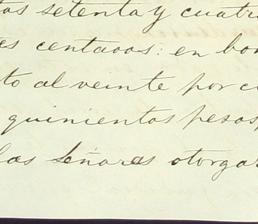 tos setenta y cuatro
es centavos: en bon
to al veinte por ci
quinientos pesos,
las Señores otorga